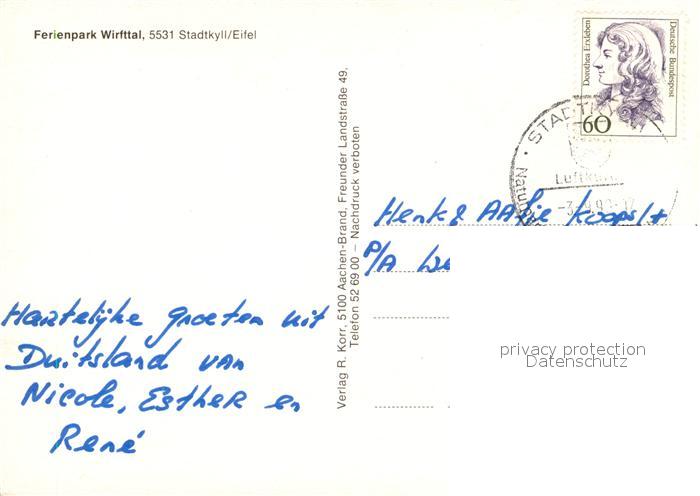 Ferienpark Wirfttal, 5531 Stadtkyll/Eifel
Dorothea Erxleben
Deutsche Bundespost
60
STADTKY
Luftku
Natu
Verlag R. Korr, 5100 Aachen-Brand, Freunder Landstraße 49,
Telefon 52 69 00 – Nachdruck verboten
Henk & AAfie Koops/+
P/A We
Hartelijke groeten uit
Duitsland van
Nicole, Esther en
René
privacy protection
Datenschutz